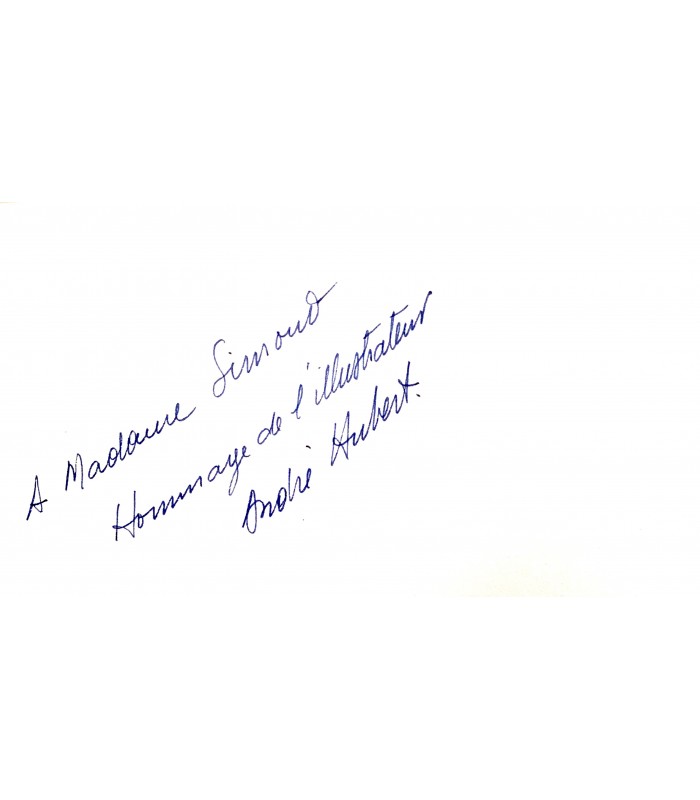 A Madame Simond
Hommage de l'illustrateur
André Hubert.